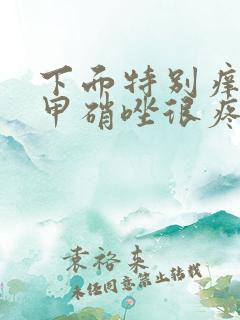 下面特别痒
甲硝唑很疼
袁裕来
未经同意禁止转载